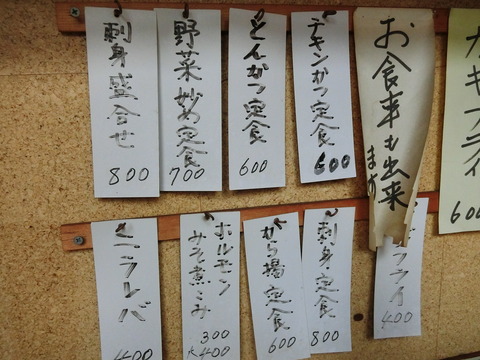 刺身盛合せ
800
野菜炒め定食
700
とんかつ定食
600
チキンかつ定食
600
お食事も出来
ます
カキフライ
600
レバ
400
ホルモン
みそ煮こみ
300
大400
から揚定食
600
刺身定食
800
フライ
400